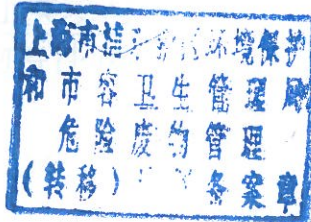 上海市 环境保护
和市容卫生管理局
危险废物管理
（转移） 备案章